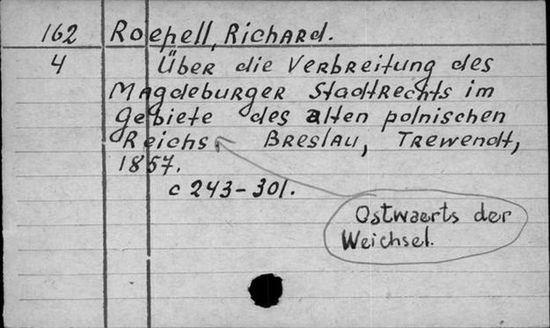 162 Roepell, Richard.
4 Über die Verbreitung des
Magdeburger Stadtrechts im
Gebiete des alten polnischen
Reichs. Breslau, Trewendt,
1857.
c 243-301.
Ostwaerts der
Weichsel.